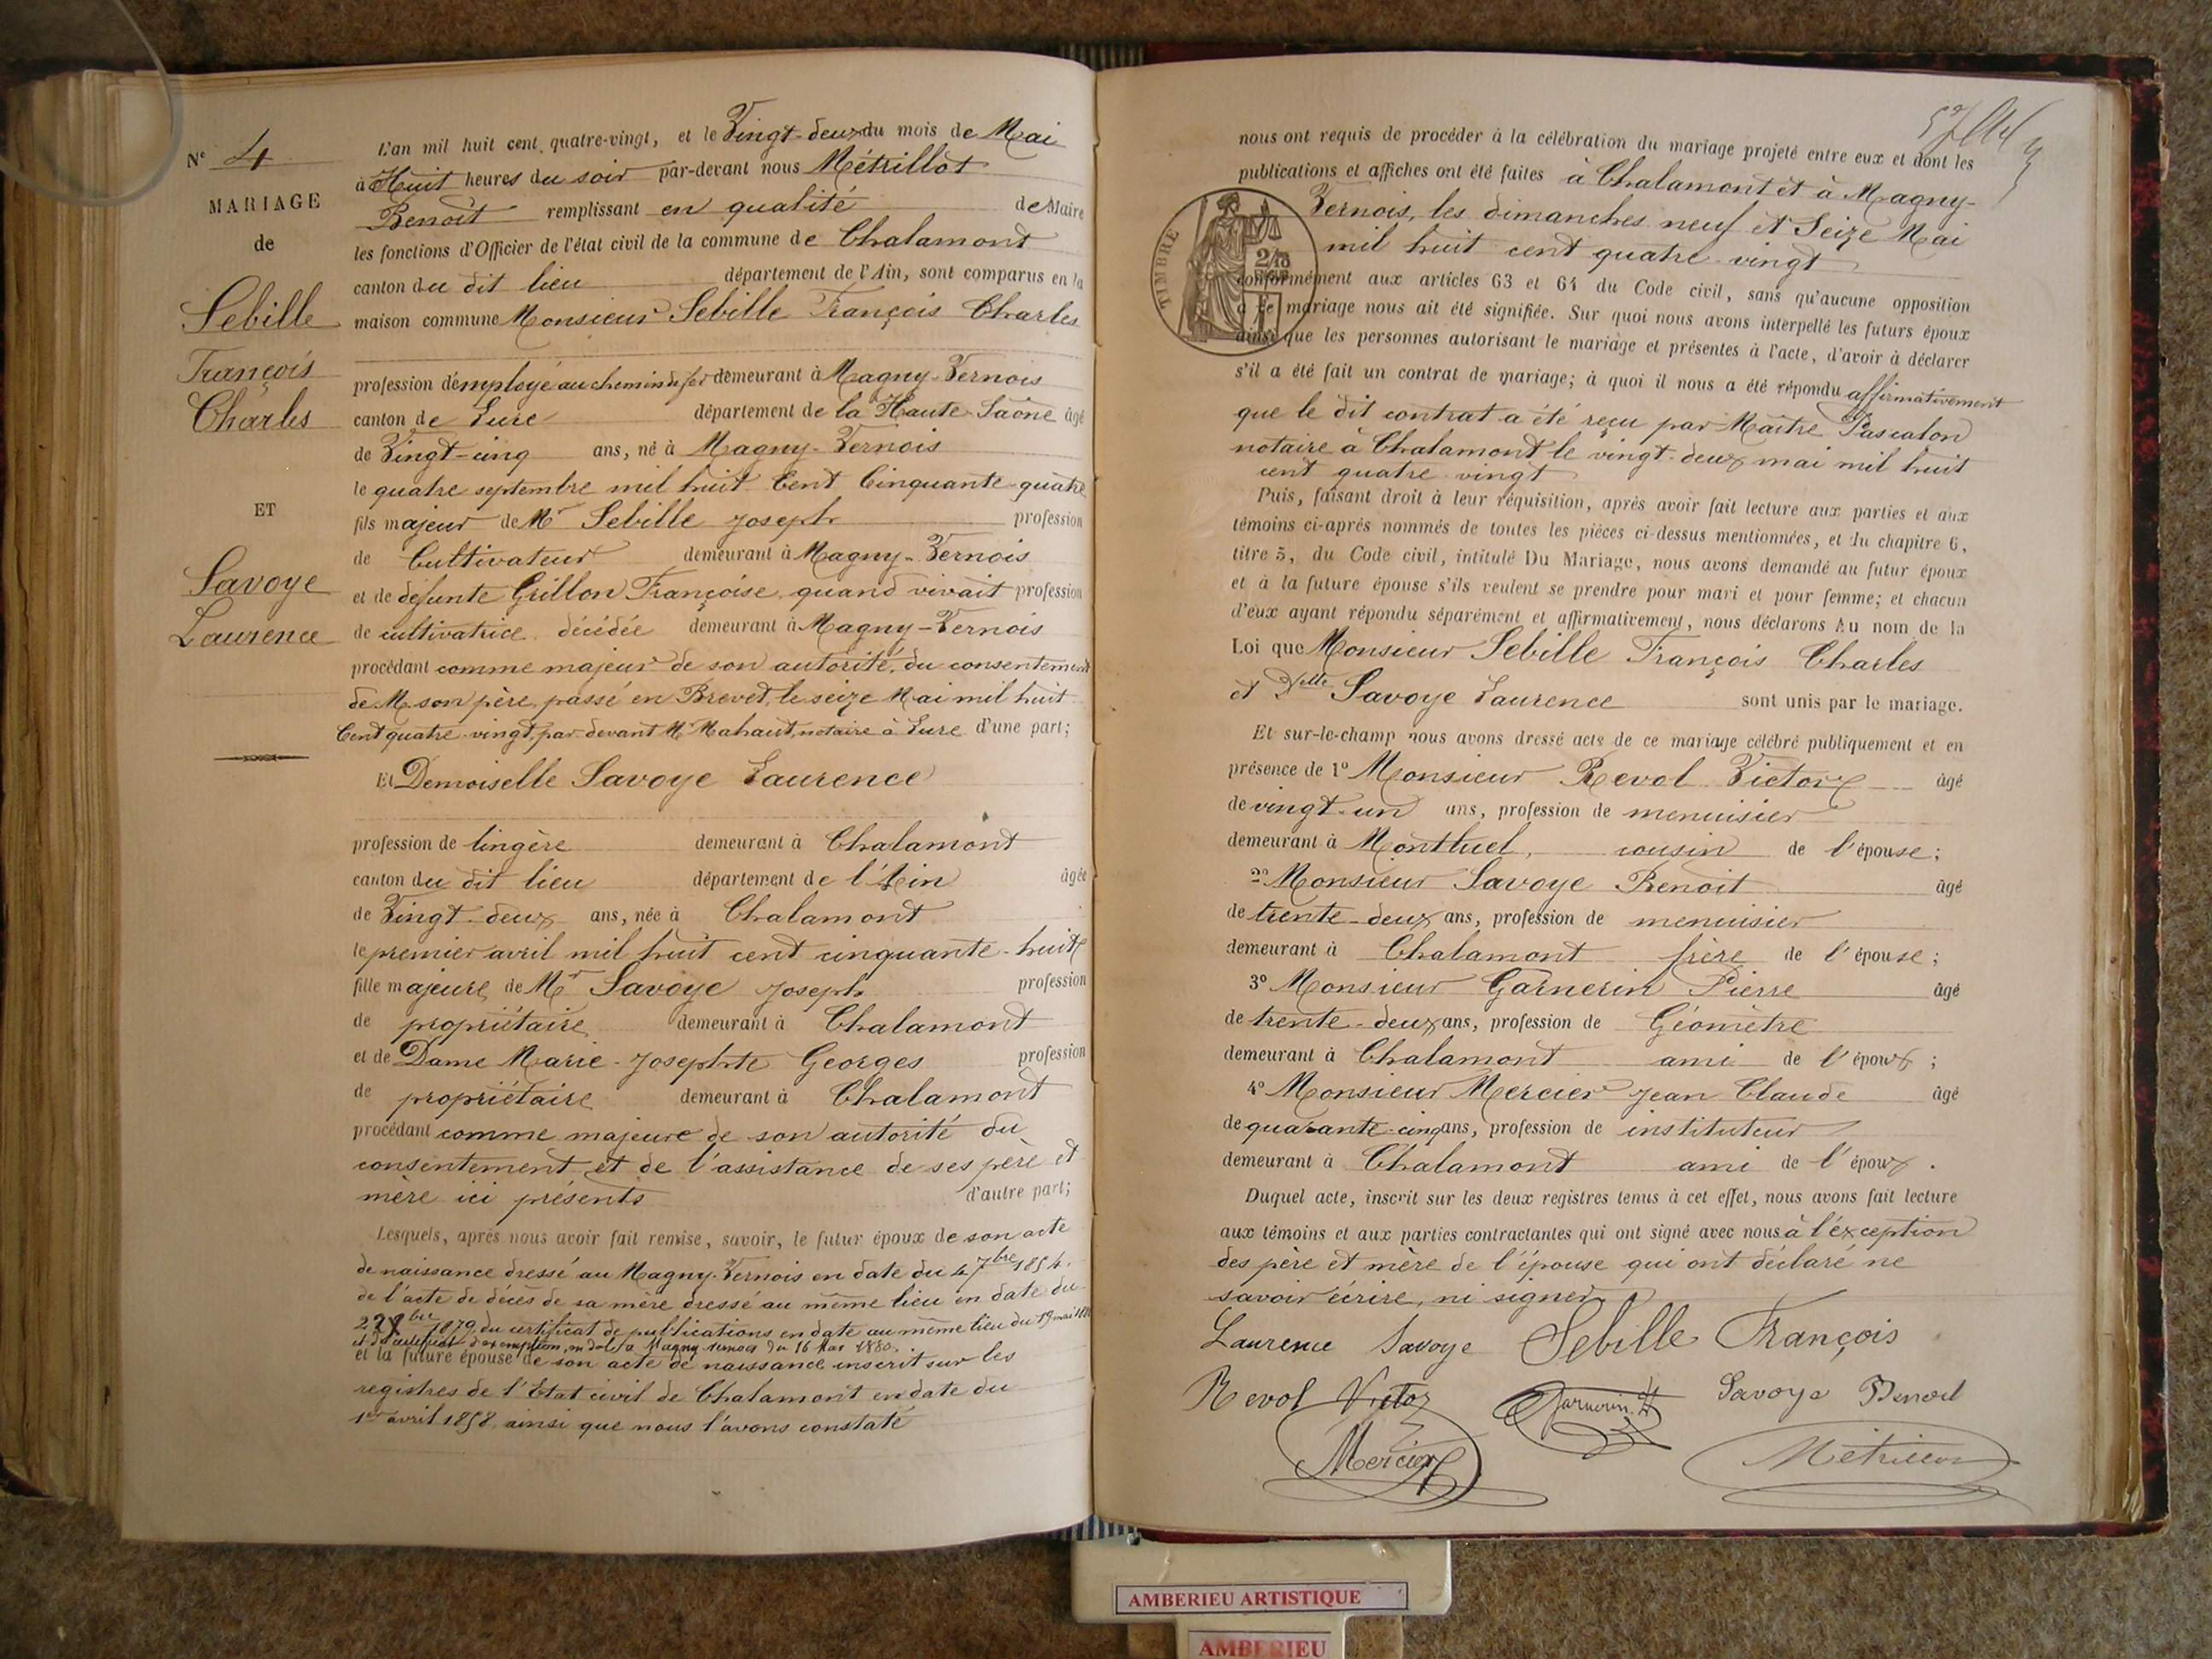 N° 4
MARIAGE
de
Sebille
François
Charles
ET
Savoye
Laurence
L'an mil huit cent quatre-vingt, et le Vingt-deux du mois de Mai
à Huit heures du soir par-devant nous Métrillot
Benoît remplissant en qualité de Maire
les fonctions d'Officier de l'état civil de la commune de Chalamont
canton du dit lieu département de l'Ain, sont comparus en la
maison commune Monsieur Sebille François Charles
profession d'employé au chemin de fer demeurant à Magny-Vernois
canton de Lure département de la Haute-Saône âgé
de Vingt-cinq ans, né à Magny-Vernois
le quatre septembre mil huit Cent Cinquante-quatre
fils majeur de Mr Sebille Joseph profession
de Cultivateur demeurant à Magny-Vernois
et de défunte Grillon Françoise, quand vivait profession
de cultivatrice décédée demeurant à Magny-Vernois
procédant comme majeur de son autorité, du consentement
de M. son père, passé en Brevet, le seize Mai mil huit
Cent quatre-vingt, par-devant Me Mahaut, notaire à Lure d'une part;
Et Demoiselle Savoye Laurence
profession de lingère demeurant à Chalamont
canton du dit lieu département de l'Ain âgée
de Vingt-deux ans, née à Chalamont
le premier avril mil huit cent cinquante-huit
fille majeure, de Mr Savoye Joseph profession
de propriétaire demeurant à Chalamont
et de Dame Marie-Josephte Georges profession
de propriétaire demeurant à Chalamont
procédant comme majeure de son autorité du
consentement et de l'assistance de ses père et
mère ici présents d'autre part;
Lesquels, après nous avoir fait remise, savoir, le futur époux de son acte
de naissance dressé au Magny-Vernois en date du 4 7bre 1854.
de l'acte de décès de sa mère dressé au même lieu en date du
1879, du certificat de publications en date au même lieu du 19 mai
et du certificat d'exemption, en date à Magny Vernois du 16 Mai 1880.
et la future épouse de son acte de naissance inscrit sur les
registres de l'Etat civil de Chalamont en date du
1er avril 1858, ainsi que nous l'avons constaté
nous ont requis de procéder à la célébration du mariage projeté entre eux et dont les
publications et affiches ont été faites à Chalamont et à Magny-
Vernois, les dimanches neuf et Seize Mai
mil huit cent quatre-vingt
TIMBRE
conformément aux articles 63 et 64 du Code civil, sans qu'aucune opposition
à ce mariage nous ait été signifiée. Sur quoi nous avons interpellé les futurs époux
ainsi que les personnes autorisant le mariage et présentes à l'acte, d'avoir à déclarer
s'il a été fait un contrat de mariage; à quoi il nous a été répondu affirmativement
que le dit contrat a été reçu par Maître Pascalon
notaire à Chalamont le vingt-deux mai mil huit
cent quatre vingt
Puis, faisant droit à leur réquisition, après avoir fait lecture aux parties et aux
témoins ci-après nommés de toutes les pièces ci-dessus mentionnées, et du chapitre 6,
titre 5, du Code civil, intitulé Du Mariage, nous avons demandé au futur époux
et à la future épouse s'ils veulent se prendre pour mari et pour femme; et chacun
d'eux ayant répondu séparément et affirmativement, nous déclarons Au nom de la
Loi que Monsieur Sebille François Charles
et Delle Savoye Laurence sont unis par le mariage.
Et sur-le-champ nous avons dressé acte de ce mariage célébré publiquement et en
présence de 1° Monsieur Revol Victor âgé
de vingt-un ans, profession de menuisier
demeurant à Montluel, cousin de l'épouse;
2° Monsieur Savoye Benoit âgé
de trente-deux ans, profession de menuisier
demeurant à Chalamont frère de l'épouse;
3° Monsieur Garnerin Pierre âgé
de trente-deux ans, profession de Géomètre
demeurant à Chalamont ami de l'époux;
4° Monsieur Mercier Jean Claude âgé
de quarante-cinq ans, profession de instituteur
demeurant à Chalamont ami de l'époux.
Duquel acte, inscrit sur les deux registres tenus à cet effet, nous avons fait lecture
aux témoins et aux parties contractantes qui ont signé avec nous à l'exception
des père et mère de l'épouse qui ont déclaré ne
savoir écrire, ni signer.
Laurence Savoye Sebille François
Revol Victor Garnerin Savoye Benoit
Mercier Métrillot
AMBERIEU ARTISTIQUE
AMBERIEU